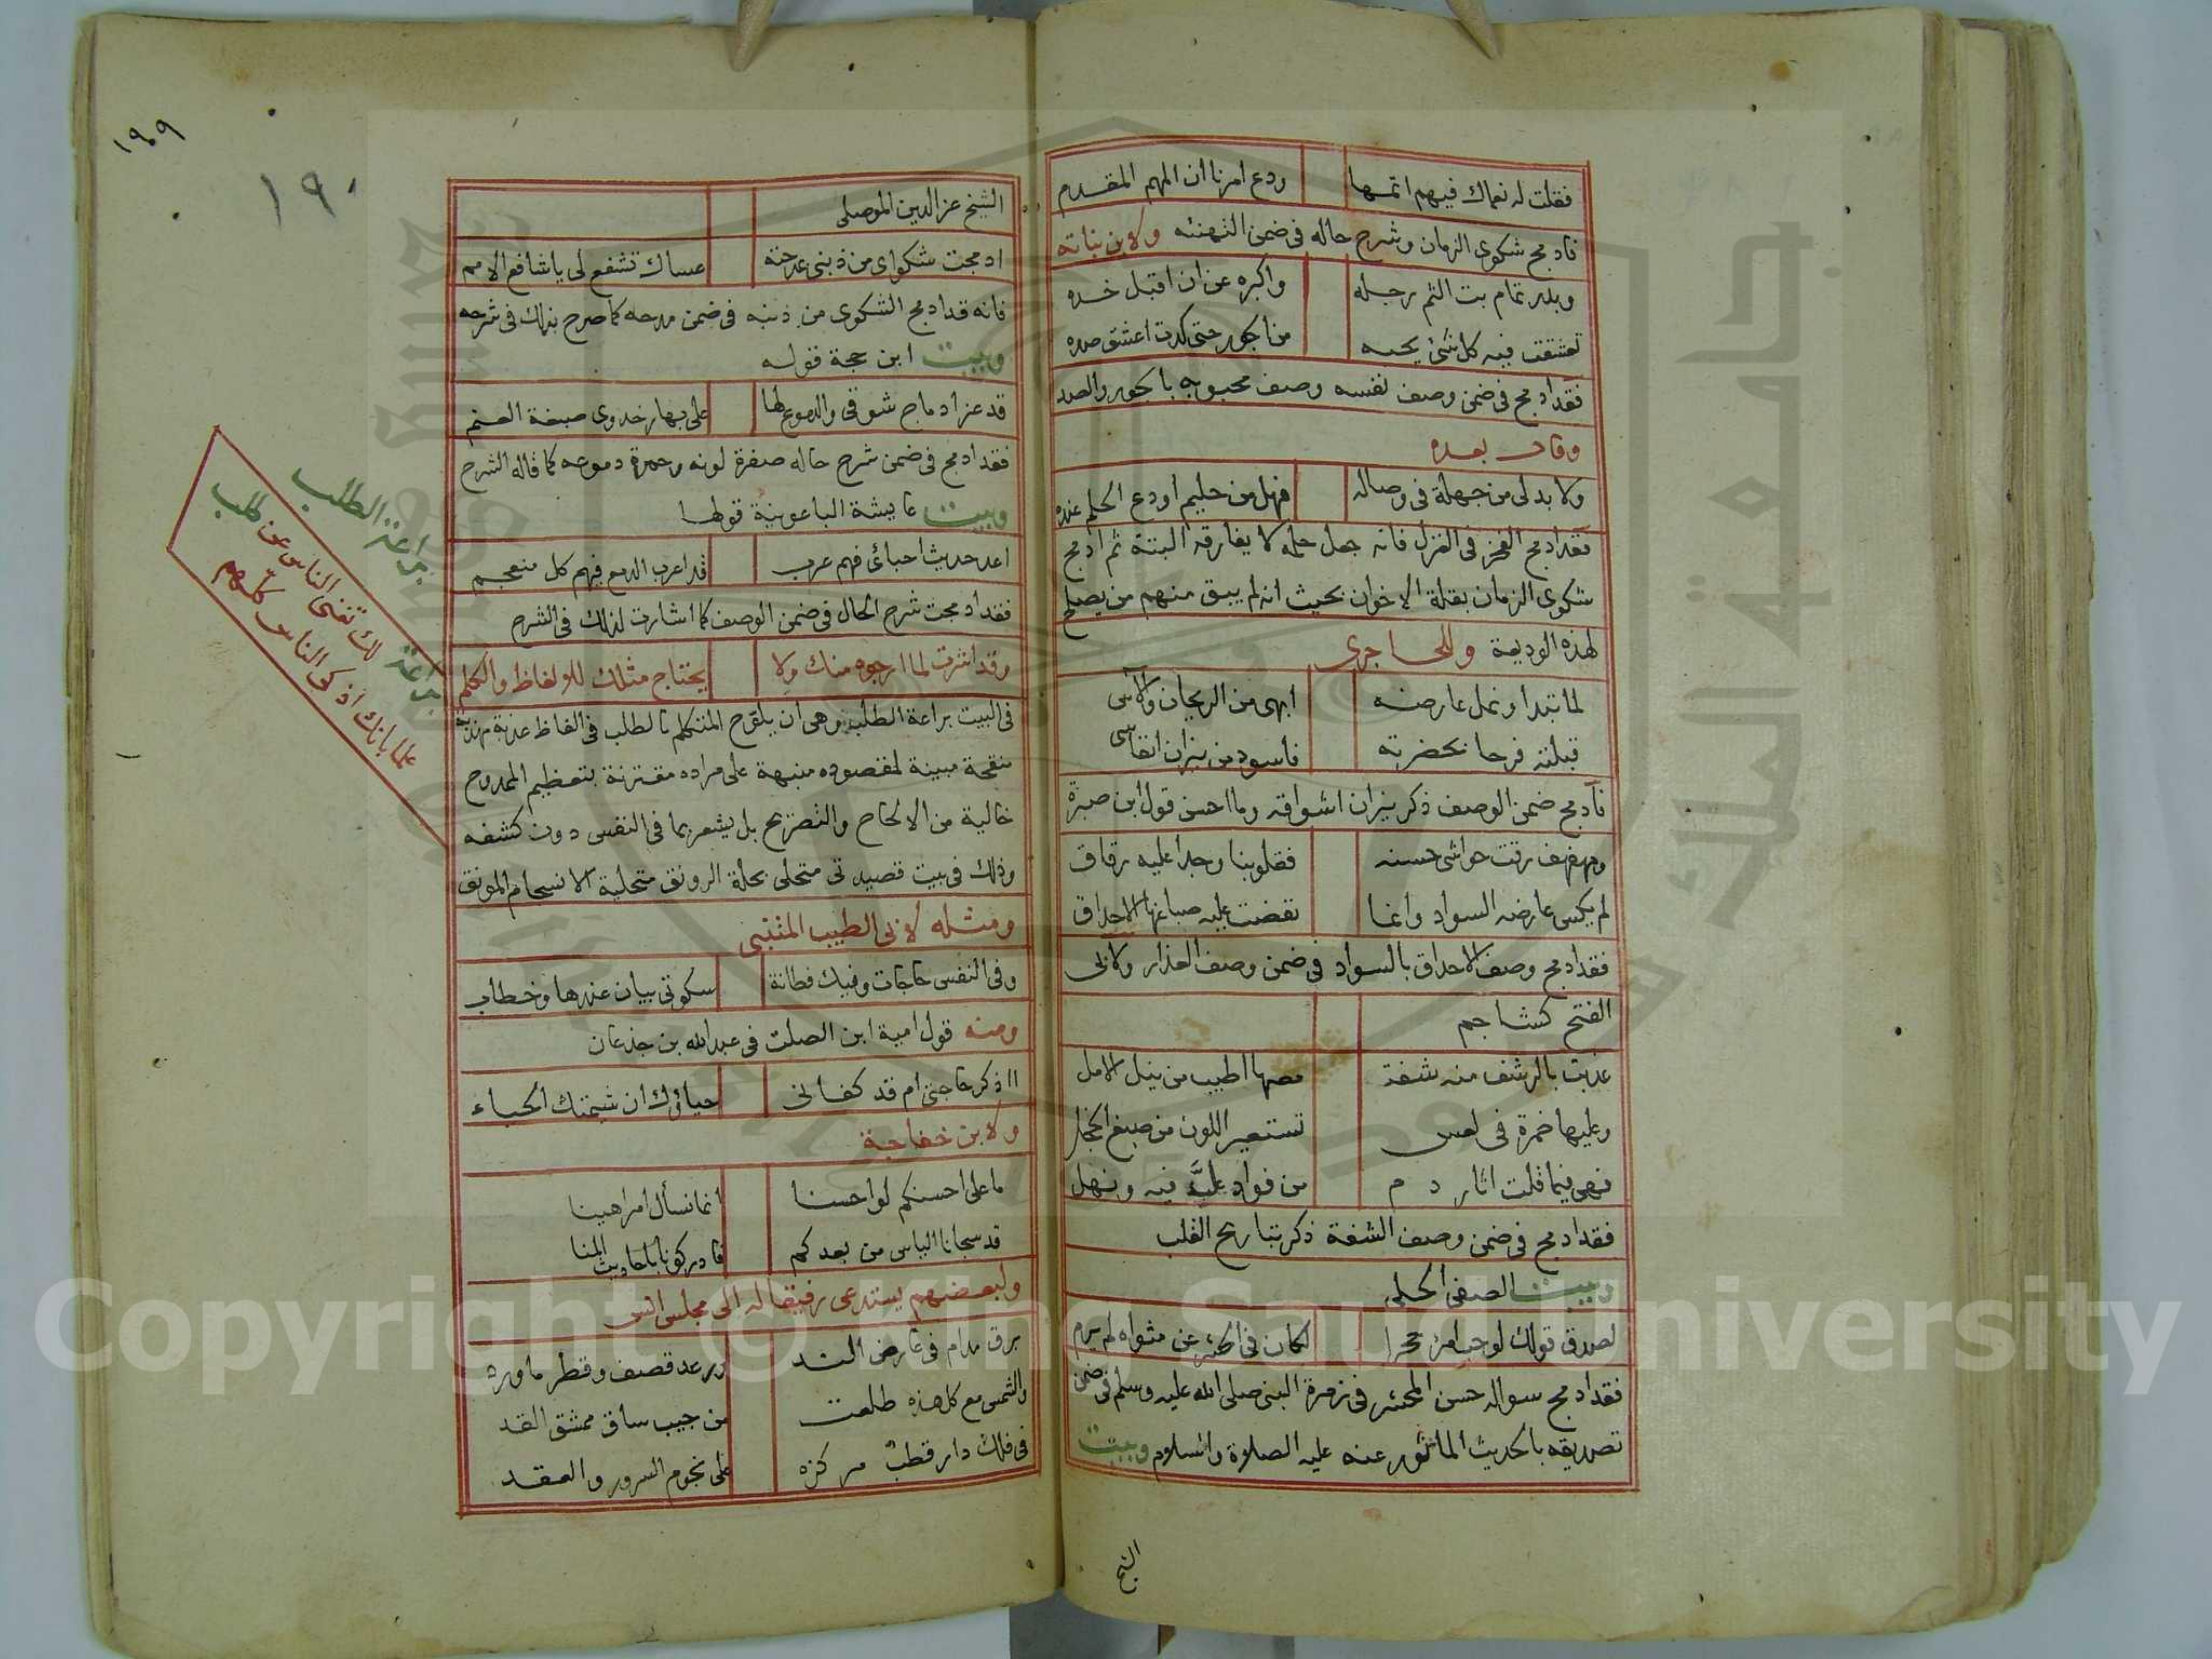 فقلت له نعماك فيهم اتمها ودع امرنا ان المهم المقدم
فادمج شكوى الزمان وشرح حاله فى ضمن التهنئه ولابن نباته
وبدر تمام بت الثم رجله واكبره عن ان اقبل خده
تعشقت فيه كل شئ يحبه من الجور حتى كدت اعشق صده
فقد ادمج فى ضمن وصف نفسه وصف محبوبه بالجور والصد
وقال بعده
ولا بد لى من جهلة فى وصاله فهل من حليم اودع الحلم عنده
فقد ادمج الفخر فى الغزل فانه جعل حلمه لا يفارقه البتة ثم ادمج
شكوى الزمان بقلة الاخوان بحيث انه لم يبق منهم من يصلح
لهذه الوديعة وللحاجرى
لما تبدا ونمل عارضه ابهى من الريحان والآس
قبلته فرحا بخضرته فاسود من نيران انفاسى
فآدمج ضمن الوصف ذكر نيران اشواقه وما احسن قول ابن صبرة
ومهفهف رقت حواشى حسنه فقلوبنا وجدا عليه رقاق
لم يكس عارضه السواد وانما نفضت عليه صباغها الاحداق
فقد ادمج وصف الاحداق بالسواد فى ضمن وصف العذار ولابى
الفتح كشاجم
عذبت بالرشف منه شفة مصها اطيب من نيل الامل
وعليها حمرة فى لعس تستعير اللون من صبغ الخجل
فهى فيما قلت اثار دم من فواد عل فيه ونهل
فقد ادمج فى ضمن وصف الشفة ذكر تباريح القلب
وبيت الصفى الحلى
لصدق قولك لو حب امرؤ حجرا لكان فى الحشر عن مثواه لم يرم
فقد ادمج سواله حسن المحشر فى زمرة النبى صلى الله عليه وسلم فى ضمن
تصديقه بالحديث الماثور عنه عليه الصلاة والسلام وبيت
الشيخ
١٩٠٩
١٩٠
الشيخ عز الدين الموصلى
ادمجت شكواى من ذنبى بمدحته عساك تشفع لى يا شافع الامم
فانه قد ادمج الشكوى من ذنبه فى ضمن مدحه كما صرح بذلك فى شرحه
وبيت ابن حجة قوله
قد عز ادماج شوقى والدموع لها على بهار خدودى صبغة العنم
فقد ادمج فى ضمن شرح حاله صفرة لونه وحمرة دموعه كما قاله الشرح
وبيت عايشة الباعونية قولها
اعد حديث احبائى فهم عرب قد اعرب الدمع فيهم كل منعجم
فقد ادمجت شرح الحال فى ضمن الوصف كما اشارت لذلك فى الشرح
وقد اشرت لما ارجوه منك ولا يحتاج مثلك للالفاظ والكلم
فى البيت براعة الطلب وهى ان يلوح المتكلم بالطلب فى الفاظ عذبة مهذبة
منقحة مبينة لمقصوده منبهة على مراده مقترنة بتعظيم الممدوح
خالية من الالحاح والتصريح بل يشعر بما فى النفس دون كشفه
وذلك فى بيت قصيدتى متحلى بحلة الرونق متحلية الانسجام المونق
ومثله لابى الطيب المتنبى
وفى النفس حاجات وفيك فطانة سكوتى بيان عندها وخطاب
ومنه قول امية ابن الصلت فى عبد الله بن جذعان
ااذكر حاجتى ام قد كفانى حياؤك ان شيمتك الحياء
ولابن خفاجة
ما على احسنكم لو احسنا انما نسأل امرا هينا
قد سجانا الياس من بعدكم فادركونا باحاديث المنا
ولبعضهم يستدعى رفيقا له الى مجلس انس
برق مدام فى عارض الند ورعد قصف وقطر ماورد
والشمس مع كل هذه طلعت من جيب ساق ممشق القد
فى فلك دار قطب مركزه على نجوم السرور والعقد
براعة الطلب
براعة لك تغنى الناس عن طلب
علما بانك اذكى الناس كلهم
Copyright © King Saud University
جامعة الملك سعود